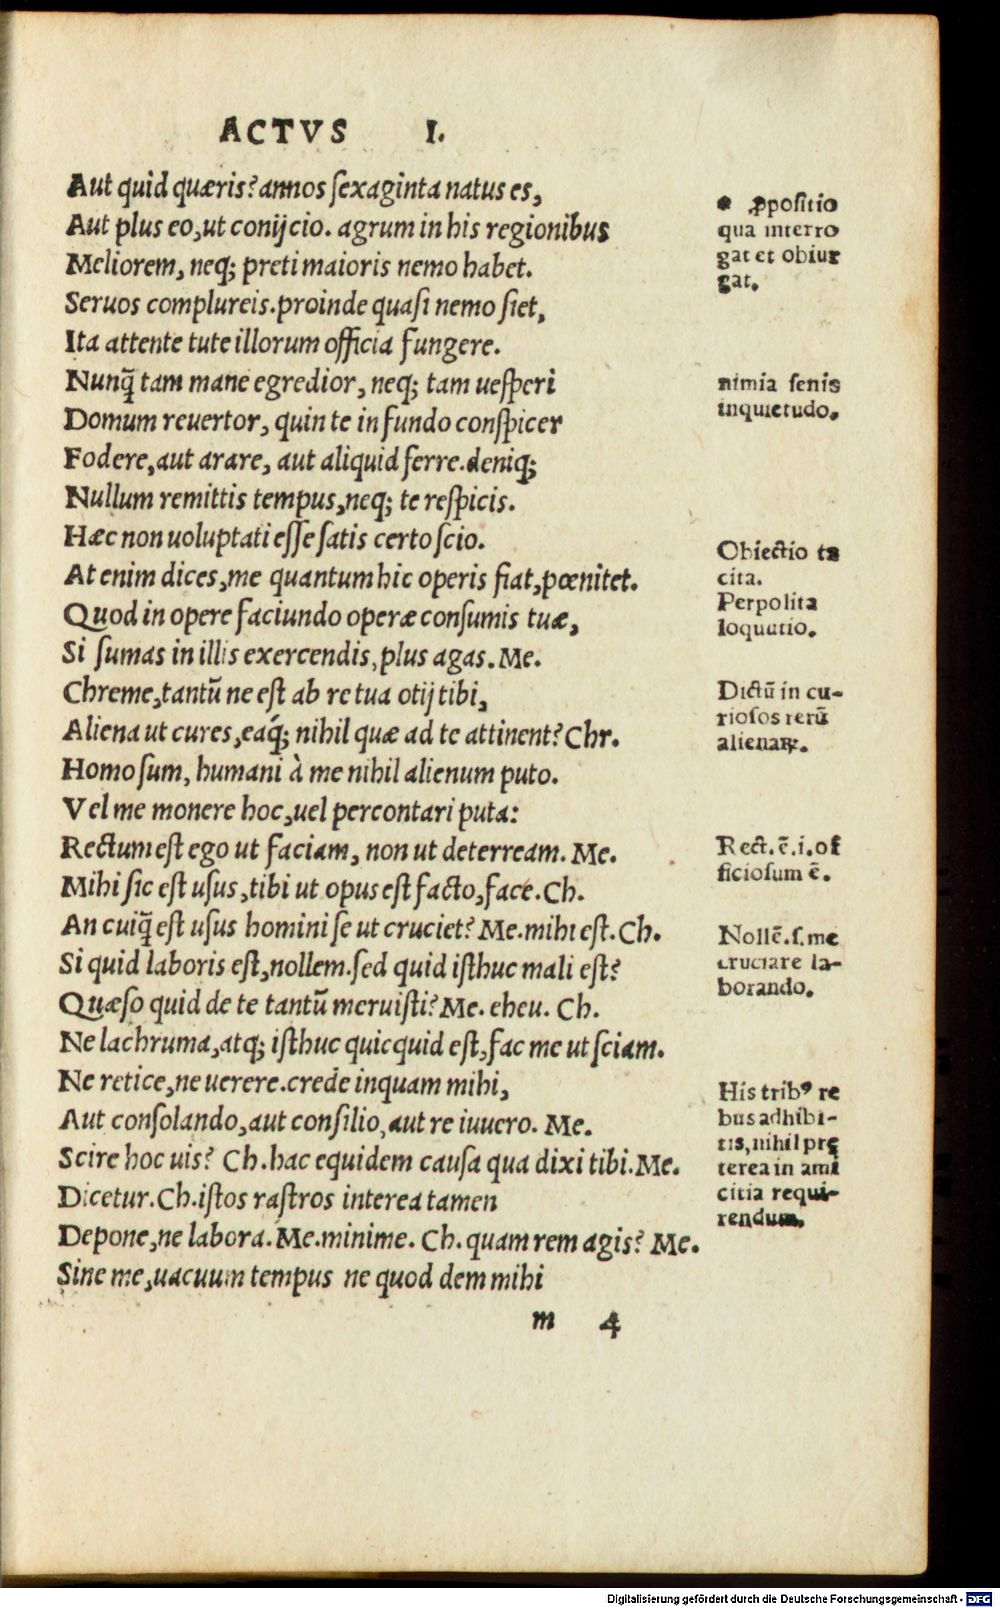 ACTVS I.
Aut quid quæris? annos ſexaginta natus es,
Aut plus eo, ut conijcio. agrum in his regionibus
Meliorem, neq; preti maioris nemo habet.
Seruos complureis. proinde quaſi nemo ſiet,
Ita attente tute illorum officia fungere.
Nunq̃ tam mane egredior, neq; tam ueſperi
Domum reuertor, quin te in fundo conſpicer
Fodere, aut arare, aut aliquid ferre. deniq;
Nullum remittis tempus, neq; te reſpicis.
Hæc non uoluptati eſſe ſatis certo ſcio.
At enim dices, me quantum hic operis fiat, pœnitet.
Quod in opere faciundo operæ conſumis tuæ,
Si ſumas in illis exercendis, plus agas. Me.
Chreme, tantũ ne eſt ab re tua otij tibi,
Aliena ut cures, eáq; nihil quæ ad te attinent? Chr.
Homo ſum, humani à me nihil alienum puto.
Vel me monere hoc, uel percontari puta:
Rectum eſt ego ut faciam, non ut deterream. Me.
Mihi ſic eſt uſus, tibi ut opus eſt facto, face. Ch.
An cuiq̃ eſt uſus homini ſe ut cruciet? Me. mihi eſt. Ch.
Si quid laboris eſt, nollem. ſed quid iſthuc mali eſt?
Quæſo quid de te tantũ meruiſti? Me. eheu. Ch.
Ne lachruma, atq; iſthuc quicquid eſt, fac me ut ſciam.
Ne retice, ne uerere. crede inquam mihi,
Aut conſolando, aut conſilio, aut re iuuero. Me.
Scire hoc uis? Ch. hac equidem cauſa qua dixi tibi. Me.
Dicetur. Ch. iſtos raſtros interea tamen
Depone, ne labora. Me. minime. Ch. quam rem agis? Me.
Sine me, uacuum tempus ne quod dem mihi
m 4
ꝓpoſitio
qua interro
gat et obiur
gat.
nimia ſenis
inquietudo.
Obiectio ta
cita.
Perpolita
loquutio.
Dictũ in cu-
rioſos rerũ
alienaꝝ.
Rect. ẽ. i. of
ficioſum ẽ.
Nollẽ. ſ. me
cruciare la-
borando.
His tribꝰ re
bus adhibi-
tis, nihil prę
terea in ami
citia requi-
rendum.
Digitalisierung gefördert durch die Deutsche Forschungsgemeinschaft - DFG